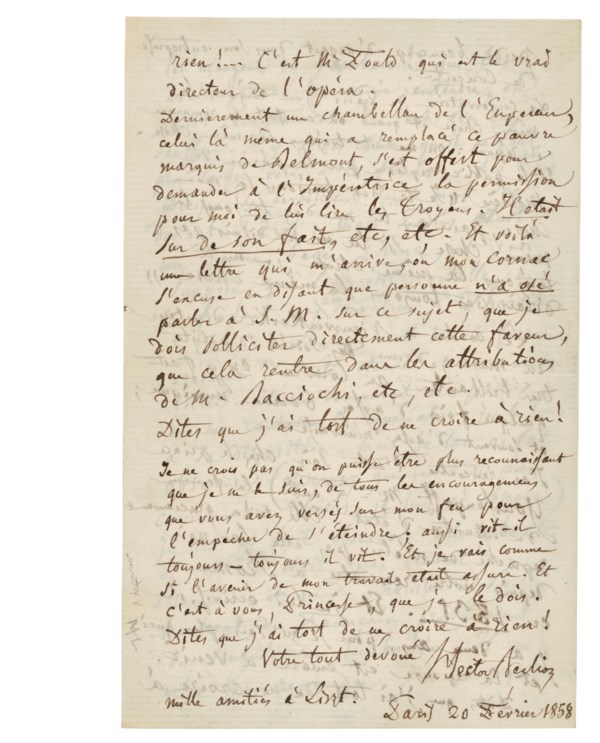 rien!... C'est Mr Fould qui est le vrai
directeur de l'opéra.
Dernièrement un chambellan de l'Empereur,
celui là même qui a remplacé ce pauvre
marquis de Belmont, s'est offert pour
demander à l'Impératrice la permission
pour moi de lui lire les Troyens. Il était
sûr de son fait, etc, etc. Et voilà
une lettre qui m'arrive, où mon cornac
s'excuse en disant que personne n'a osé
parler à S. M. sur ce sujet, que je
dois solliciter directement cette faveur,
que cela rentre dans les attributions
de M. Bacciochi, etc, etc.
Dites que j'ai tort de ne croire à rien!
Je ne crois pas qu'on puisse être plus reconnaissant
que je ne le suis, de tous les encouragemens
que vous avez versés sur mon feu pour
l'empêcher de s'éteindre; aussi vit-il
toujours – toujours il vit. Et je vais comme
si l'avenir de mon travail était assuré. Et
c'est à vous, Princesse, que je le dois.
Dites que j'ai tort de ne croire à rien!
Votre tout dévoué Hector Berlioz
mille amitiés à Liszt.
Paris 20 Février 1858